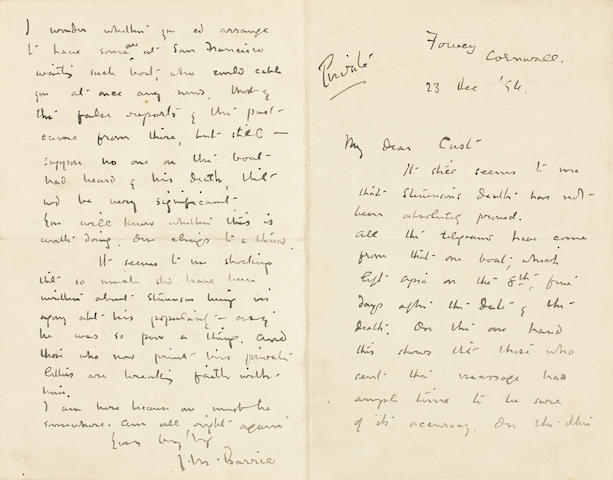 Private
Fowey
Cornwall.
23 Dec '94.
My dear Cust
It still seems to me
that Stevenson's death has not
been absolutely proved.
All the telegrams have come
from that one boat, which
left Apia on the 8th, five
days after the date of the
death. On the one hand
this shows that those who
sent the message had
ample time to be sure
of its accuracy. On the other
I wonder whether you cd arrange
to have some one at San Francisco
waiting such boat, who could cable
you at once any news. Most of
the false reports of the past
came from there, but still —
suppose no one on the boat
had heard of his death, that
wd be very significant.
You will know whether this is
worth doing. One clings to a thread.
It seems to me shocking
that so much shd have been
written about Stevenson being in
agony abt his popularity – as if
he was so poor a thing. And
those who now print his private
letters are breaking faith with
him.
I am here because one must be
somewhere. Am all right again
Yours
J. M. Barrie